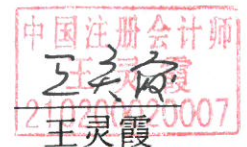 中国注册会计师
王灵霞
210200020007
王灵霞